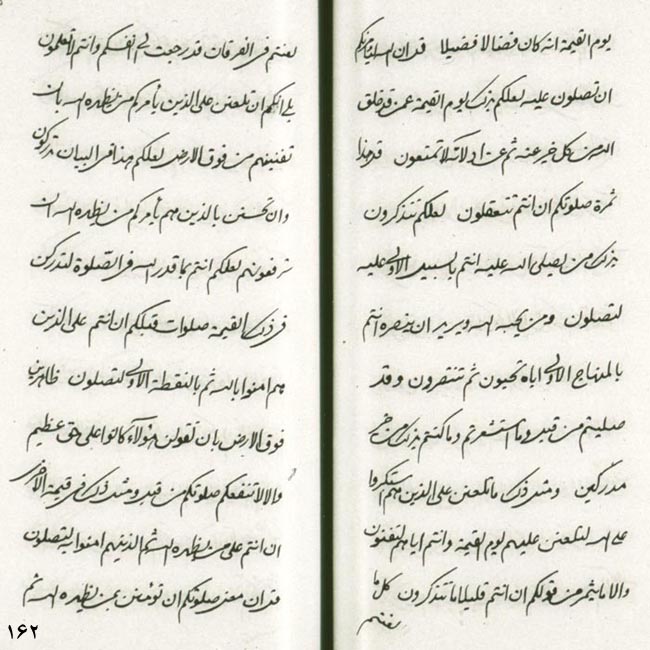 يوم القيمة انه كان فضالا فضيلا قد ان الله ليأمرنكم
ان تصلون عليه لعلكم بذلك يوم القيمة عمن قد خلق
الله من كل خير عنه ثم عن ادلائه لا تمنعون قد هذا
ثمرة صلوتكم ان انتم تتعقلون لعلكم تتذكرون
بذلك من يصلى الله عليه انتم بالسبيل الاولى عليه
لتصلون ومن يحبه الله ويريد ان ينصره انتم
بالمنهاج الاولى اياه تحبون ثم تنتصرون وقد
صليتم من قبل وما استشعرتم وما كنتم بذلك من خير
مدركين ومثل ذلك ما تلعنن على الذين هم استكبروا
على الله لتلعنن عليهم يوم القيمة وانتم اياهم لتفنون
والا ما يثمر من قولكم ان انتم قليلا ما تتذكرون كل ما
لعنتم
لعنتم فى الفرقان قد رجعت الى انفسكم وانتم لا تعلمون
بلى انكم ان تلعنن على الذين يأمركم من يظهره الله بان
تفنينهم من فوق الارض لعلكم هذا فى البيان تدركون
وان تحسنن بالذين هم يأمركم من يظهره الله ان
ترفعونهم لعلكم انتم بما قدر الله فى الصلوة لتدركن
فى ذلك القيمة صلوات قبلكم ان انتم على الذين
هم امنوا بالله ثم بالنقطة الاولى لتصلون ظاهرين
فوق الارض بان تقولن هؤلاء كانوا على حق عظيم
والا لا تنفعكم صلوتكم من قبل ومثل ذلك فى قيمة الاخرى
ان انتم على من يظهره الله ثم الذينهم امنوا به لتصلون
قد ان معنى صلوتكم ان تؤمنن بمن يظهره الله ثم
١٦٢